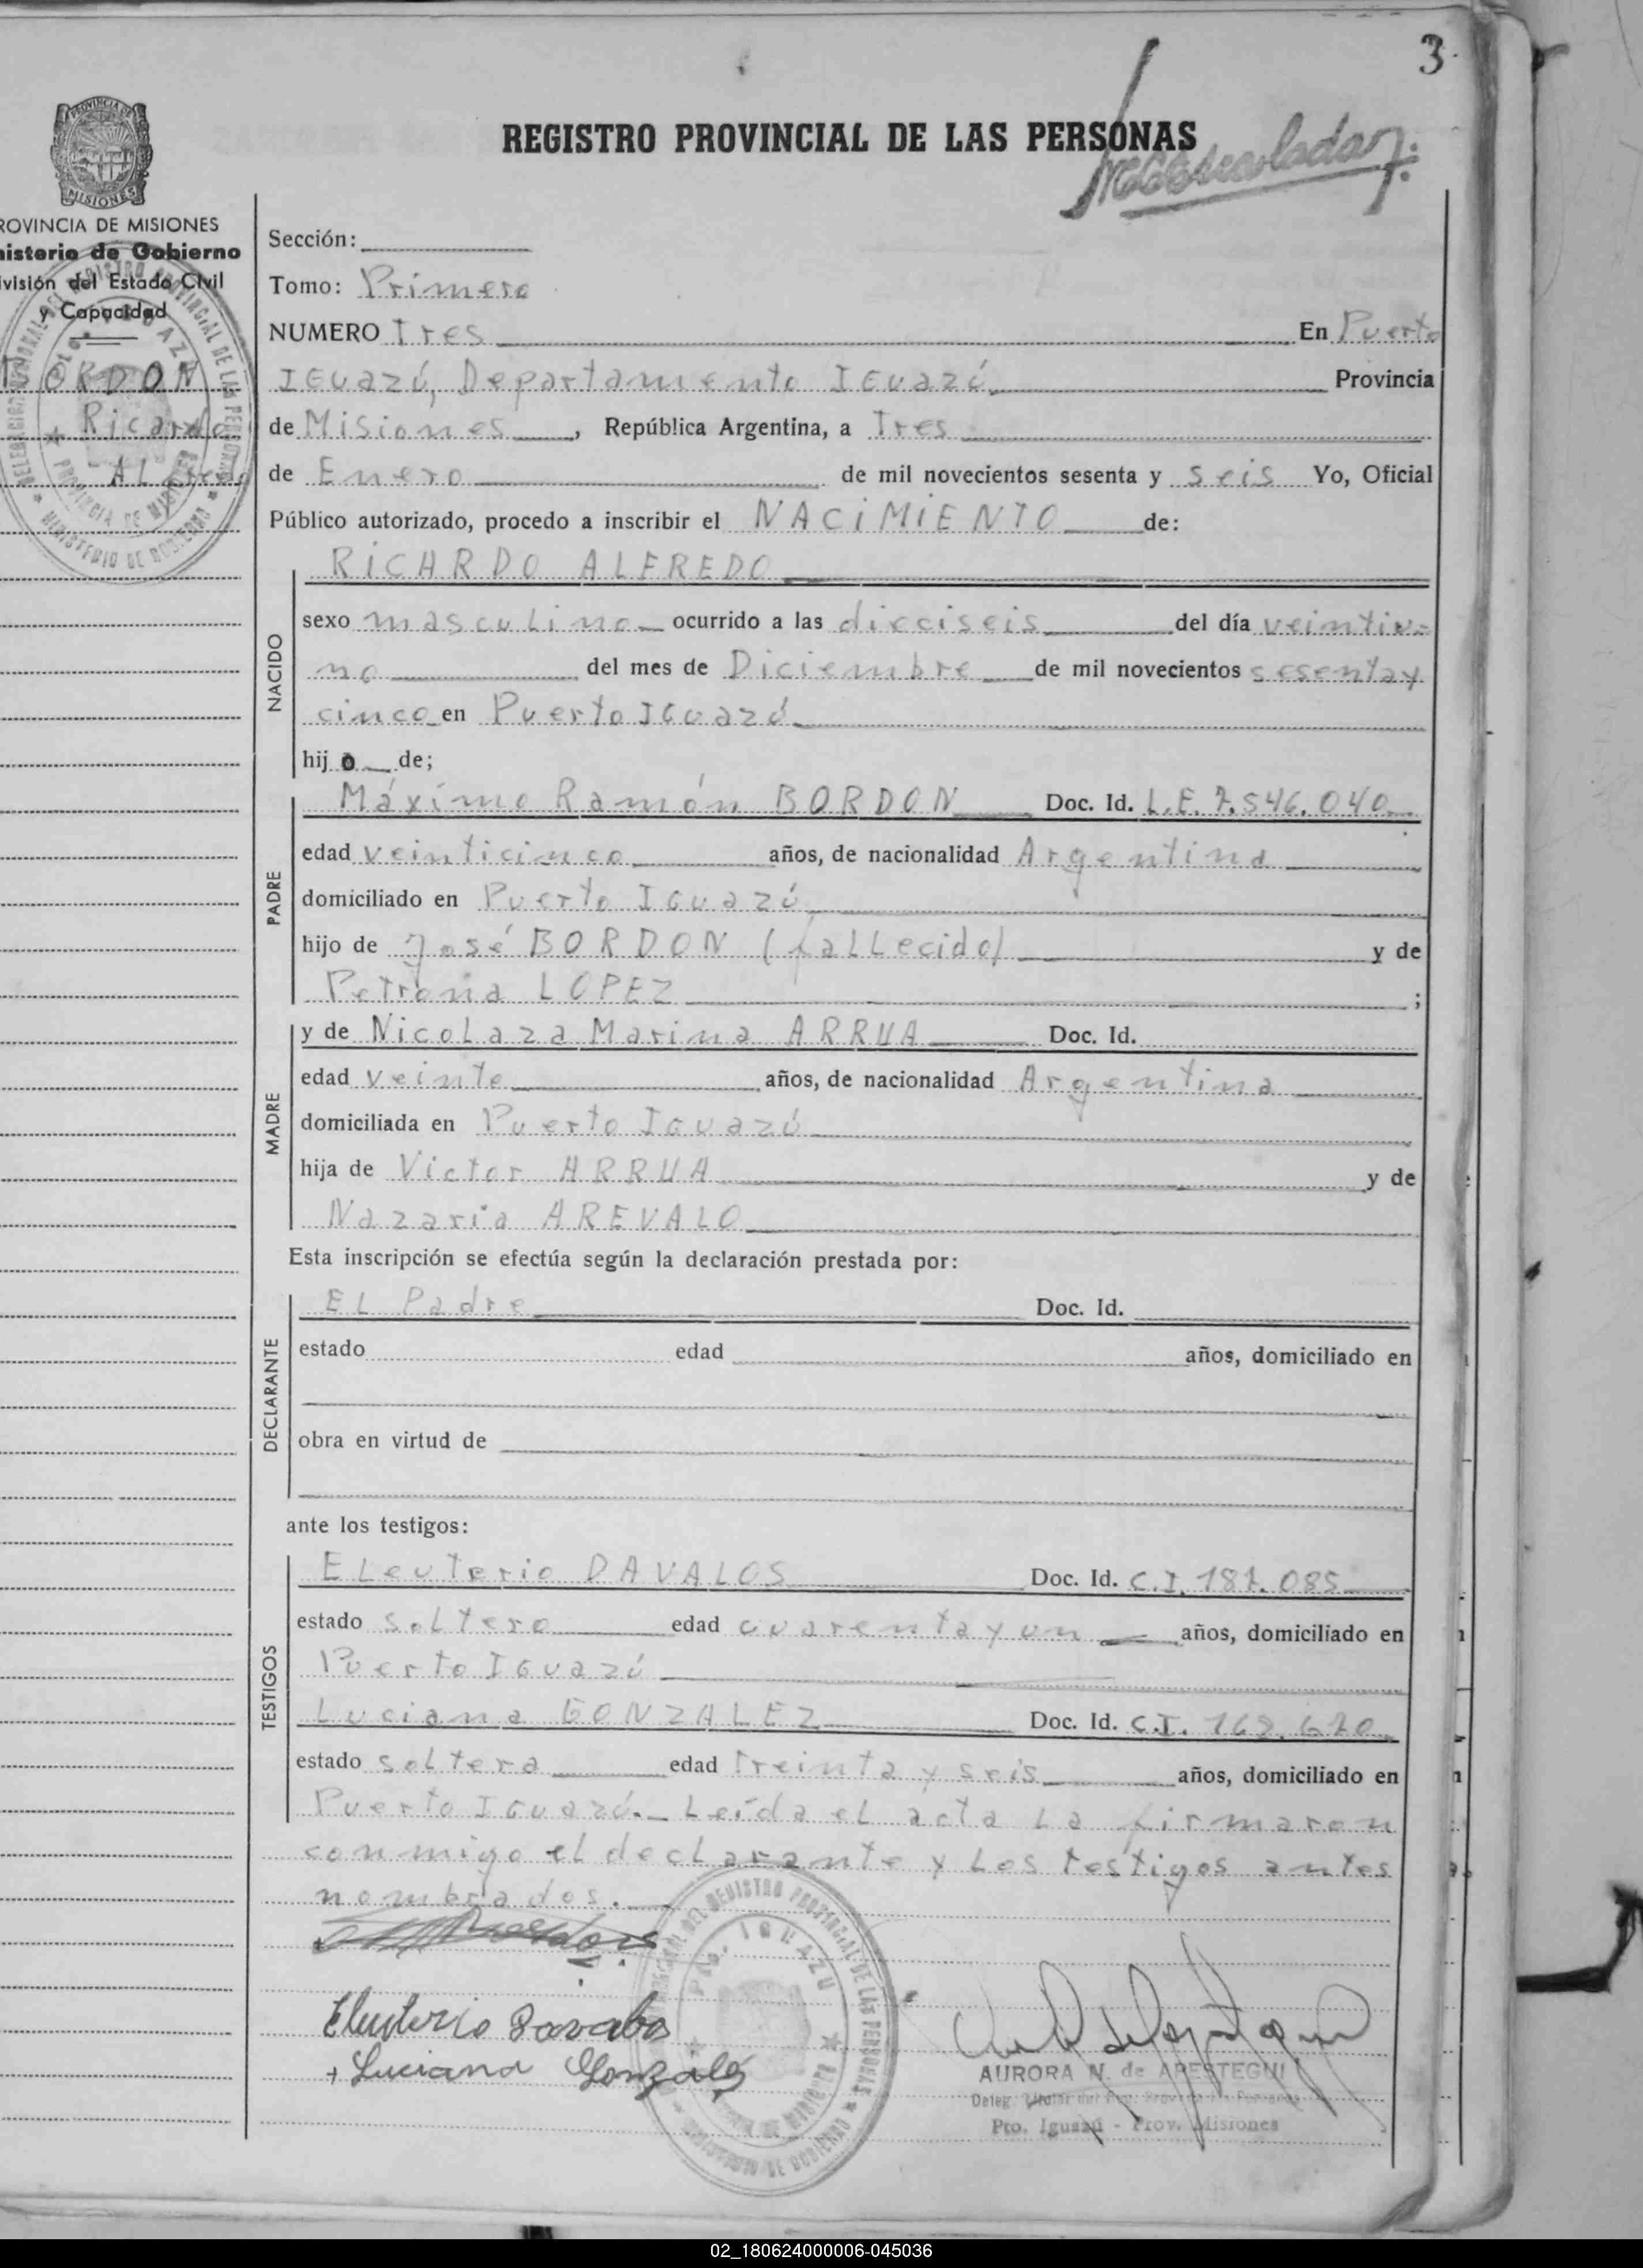 3
REGISTRO PROVINCIAL DE LAS PERSONAS
PROVINCIA DE
MISIONES
ROVINCIA DE MISIONES
nisterio de Gobierno
ivisión del Estado Civil
y Capacidad
ORDON
Ricardo
Sección:
Tomo: Primero
NUMERO Tres En Puerto
IGuazú, Departamento IGuazú Provincia
de Misiones, República Argentina, a Tres
de Enero de mil novecientos sesenta y seis Yo, Oficial
Público autorizado, procedo a inscribir el NACIMIENTO de:
NACIDO
RICARDO ALFREDO
sexo masculino ocurrido a las dieciseis del día veintiu-
no del mes de Diciembre de mil novecientos sesentay
cinco en Puerto IGuazú
hijo de;
PADRE
Máximo Ramón BORDON Doc. Id. L.E. 7.546.040
edad veinticinco años, de nacionalidad Argentina
domiciliado en Puerto IGuazú
hijo de José BORDON (fallecido) y de
Petrona LOPEZ ;
MADRE
y de Nicolaza Marina ARRUA Doc. Id.
edad veinte años, de nacionalidad Argentina
domiciliada en Puerto IGuazú
hija de Victor ARRUA y de
Nazaria AREVALO
Esta inscripción se efectúa según la declaración prestada por:
DECLARANTE
El Padre Doc. Id.
estado edad años, domiciliado en
obra en virtud de
ante los testigos:
TESTIGOS
Eleuterio DAVALOS Doc. Id. C.I. 187.085
estado soltero edad cuarentay un años, domiciliado en
Puerto IGuazú
Luciana GONZALEZ Doc. Id. C.I. 162.620
estado soltera edad treinta y seis años, domiciliado en
Puerto IGuazú. Leída el acta la firmaron
conmigo el declarante y los testigos antes
nombrados.
Eleuterio Davalos
+ Luciana Gonzalez
DELEGACION SECCIONAL DEL REGISTRO PROVINCIAL DE LAS PERSONAS
PTO. IGUAZU
PROVINCIA DE MISIONES
MINISTERIO DE GOBIERNO
AURORA N. de ARESTEGUI
Pto. Iguazú - Prov. Misiones
02_180624000006-045036